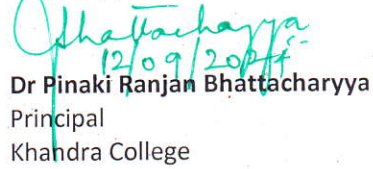 Bhattacharyya
12/09/2024
Dr Pinaki Ranjan Bhattacharyya
Principal
Khandra College